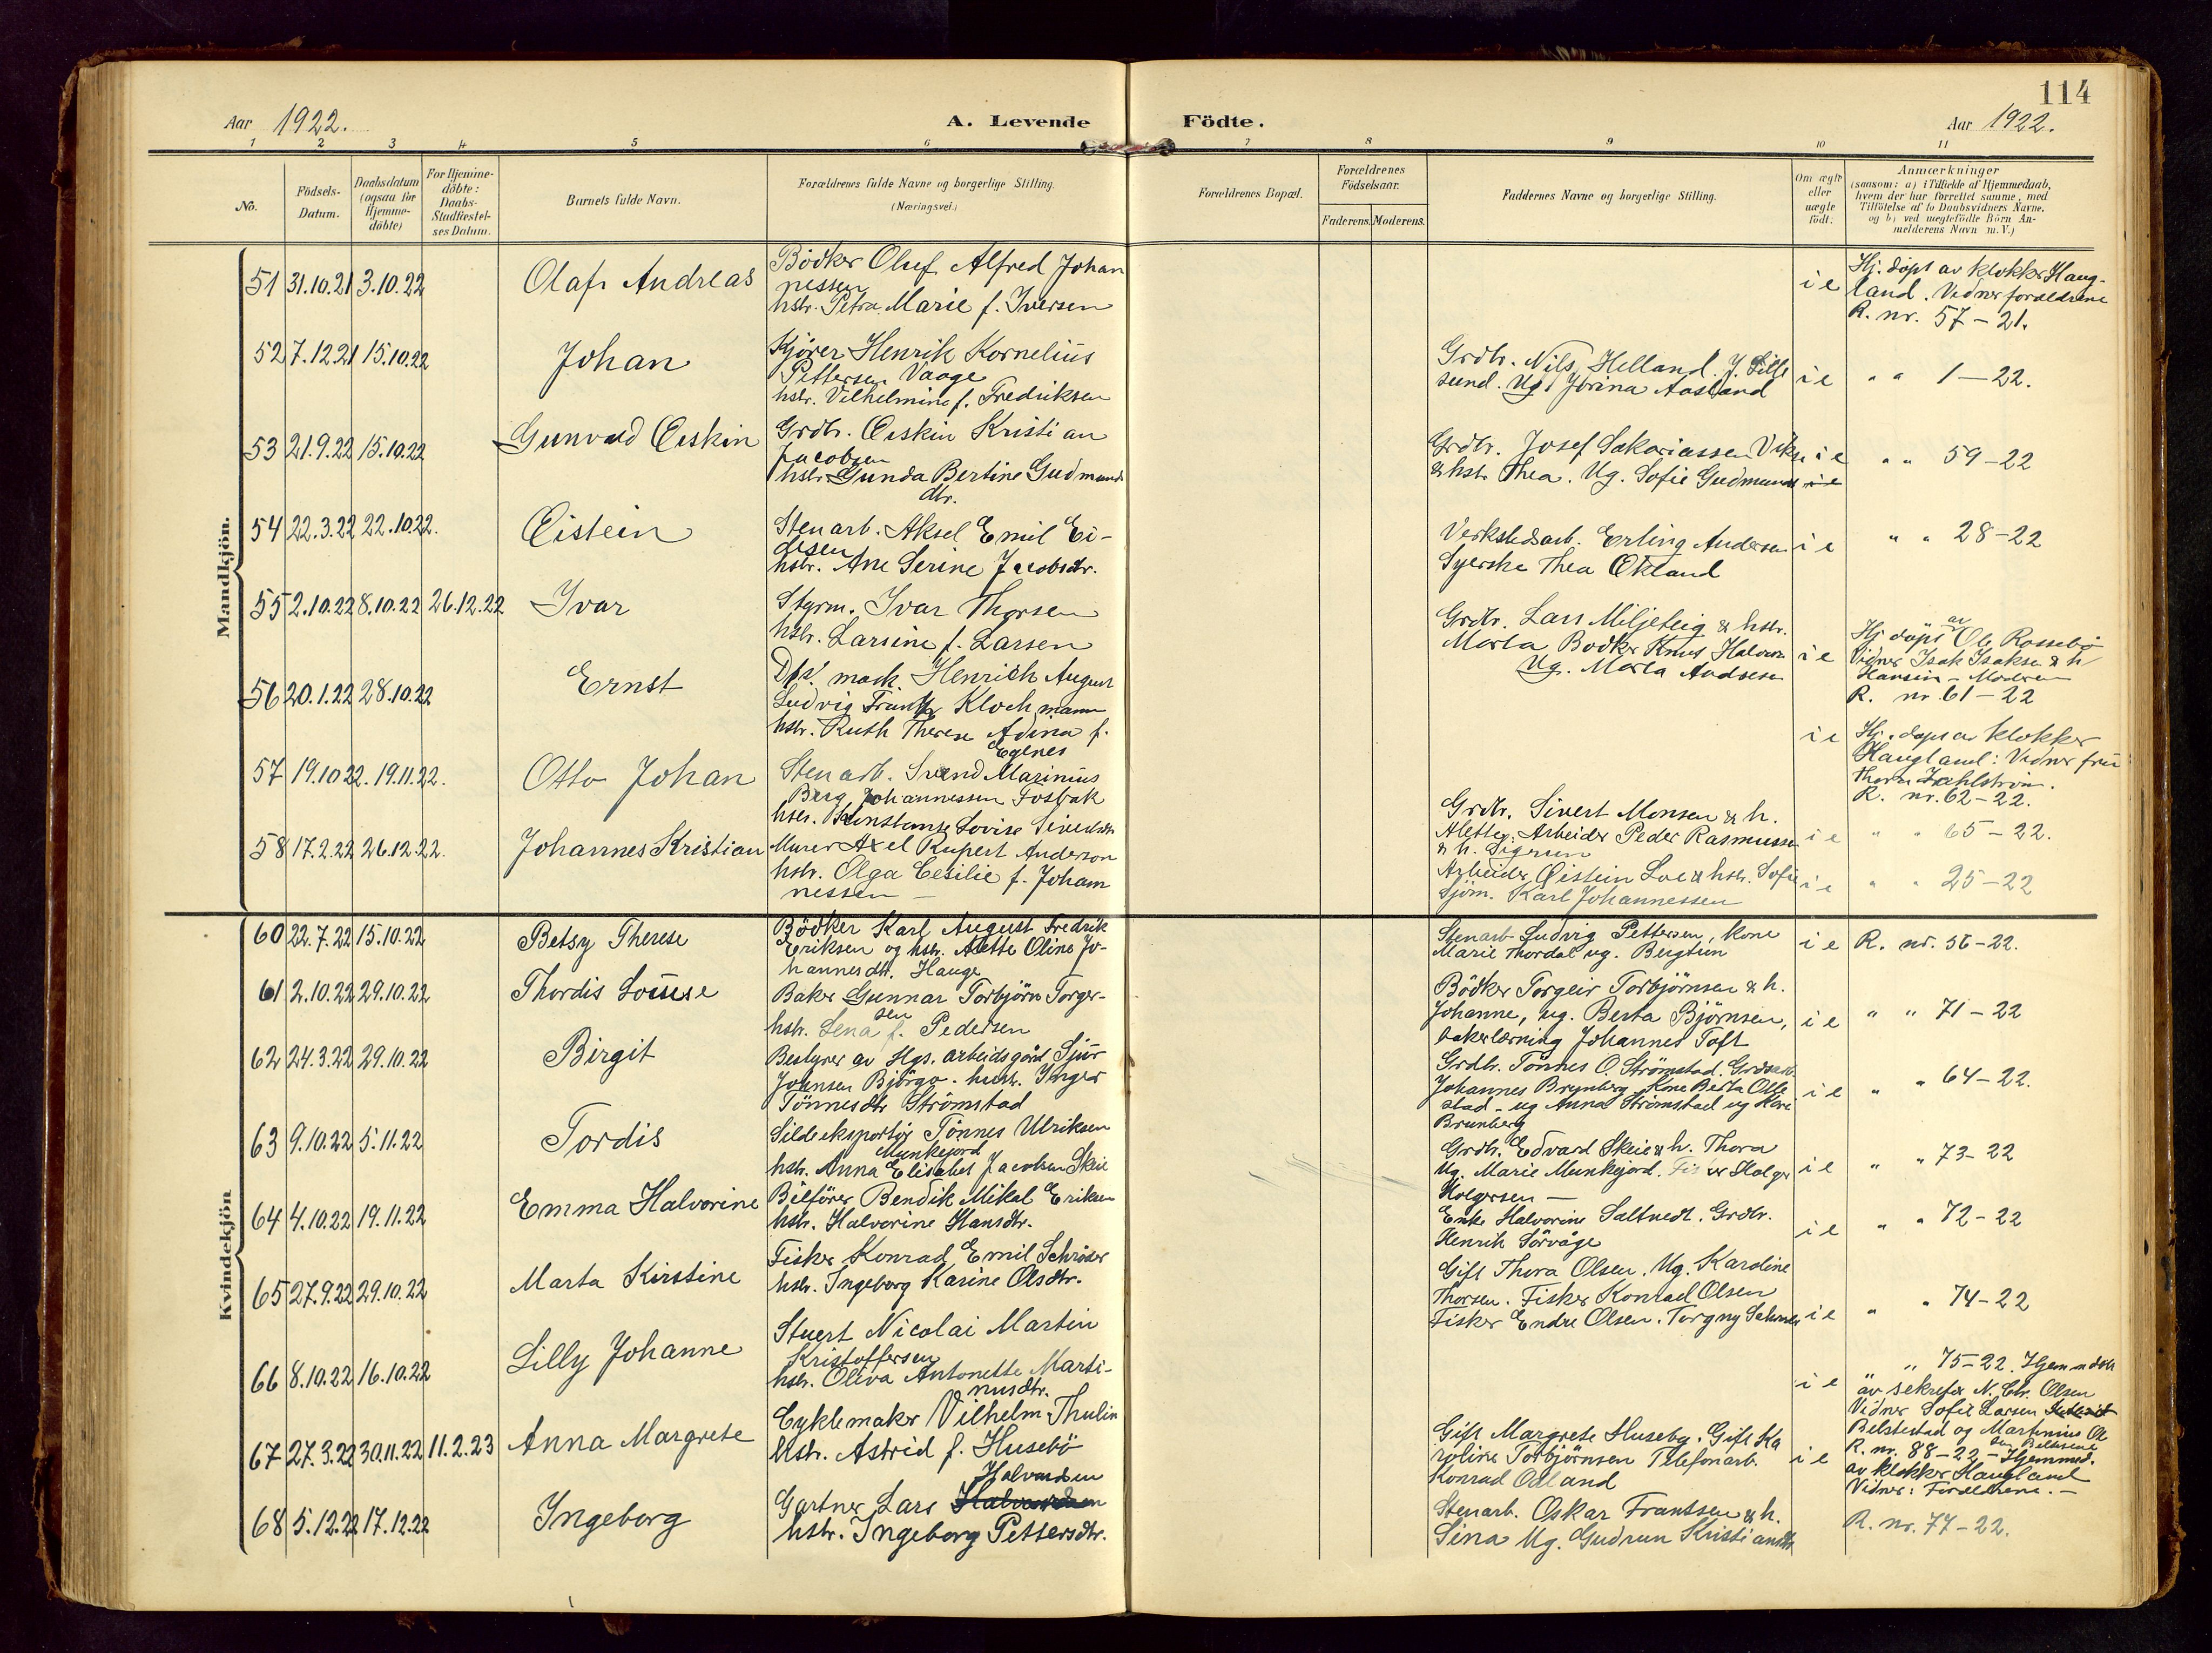 114
Aar 1922.
A. Levende Födte.
Aar 1922.
1 2 3 4 5 6 7 8 9 10 11
No.
Födsels-
Datum.
Daabsdatum
(ogsaa for
Hjemme-
döbte)
For Hjemme-
döbte:
Daabs-
Stadfæstel-
ses Datum.
Barnets fulde Navn.
Forældrenes fulde Navne og borgerlige Stilling.
(Næringsvei.)
Forældrenes Bopæl.
Forældrenes
Födselsaar.
Faderens. Moderens.
Faddernes Navne og borgerlige Stilling.
Om ægte
eller
uægte
födt.
Anmærkninger
(saasom: a) i Tilfælde af Hjemmedaab,
hvem der har forrettet samme, med
Tilföielse af to Daabsvidners Navne.
og b) ved uægtefödte Börn An-
melderens Navn m. V.)
Mandkjön.
51 31.10.21 3.10.22 Olaf Andreas
Bödker Oluf Alfred Johan
nessen
hstr. Petra Marie f. Iversen
i e
Hj. döpt av klokker Haug-
land. Vidner foreldrene
R. nr. 57-21.
52 7.12.21 15.10.22 Johan
Kjörer Henrik Kornelius
Pettersen Vaage
hstr. Vilhelmine f. Fredriksen
Grdbr. Nils Helland. J. Lille
sund. Ug. Jorina Aasland
i e
" " 1-22.
53 21.9.22 15.10.22 Gunvald Øiskin
Grdbr. Øiskin Kristian
Jacobsen
hstr. Gunda Bertine Gudmunds
dtr.
Grdbr. Josef Sakariassen Vikse
& hstr Thea. Ug. Sofie Gudmunds
i e
" " 59-22
54 22.3.22 22.10.22. Øistein
Stenarb. Aksel Emil Ei-
desen
hstr. Ane Serine Jacobsdtr.
Verkstedsarb. Erling Andersen
Syerske Thea Økland
i e
" " 28-22
55 2.10.22 8.10.22 26.12.22 Ivar
Styrm. Ivar Thorsen
hstr. Larsine f. Larsen
Grdbr. Lars Miljeteig & hstr.
Marta, Bödker Knut Halvors
Ug. Marta Andresen
i e
Hj. döpt av Ole Rossebö
Vidner Isak Isaksen & h
R. nr 61-22
56 20.1.22 28.10.22 Ernst
Dpsk. mask. Henrich August
Ludvig Frantz Klochmann
hstr. Ruth Therese Adina f.
Egenes
i e
Hj. döpt av klokker
Haugland: Vidner fru
R. nr. 62-22.
57 19.10.22. 19.11.22. Otto Johan
Stenarb. Svend Marinius
Berg Johannessen Fosbak
hstr. Konstanse Lovise Sivertsdtr
Grdbr. Sivert Monsen & h.
Alette, Arbeider Peder Rasmussen
& h. Sigrun
i e
" " 65-22.
58 17.2.22 26.12.22. Johannes Kristian
Murer Axel Rupert Anderson
hstr. Olga Cesilie f. Johan
nessen
Arbeider Øistein Loe & hstr. Sofie
Sjöm. Karl Johannessen
i e
" " 25-22
Kvindekjön
60 22.7.22 15.10.22 Betsy Therese
Bödker Karl August Fredrik
Eriksen og hstr. Alette Oline Jo-
hannesdtr. Hauge
Stenarb. Ludvig Pettersen, kone
Marie Thordal ug. Bergtun
i e
R. nr. 56-22.
61 2.10.22 29.10.22 Thordis Louise
Baker Gunnar Torbjörn Torger-
sen
hstr. Lena f. Pedersen
Bödker Torgeir Torbjörnsen & h.
Johanne, ug. Berta Björnsen,
bakerlærning Johannes Toft
i e
" " 71-22
62 24.3.22 29.10.22 Birgit
Bestyrer av Hgs. arbeidsgård Sjur
Johnsen Björgo. hustr. Inger
Tönnesdtr Strömstad
Grdbr. Tönnes O. Strömstad. Grdsarb.
Johannes Brynberg. Kone Berta Olle
stad - ug Anna Strömstad ug Kåre
Brunberg
i e
" " 64-22.
63 9.10.22 5.11.22 Tordis
Sildeeksportör Tönnes Ulriksen
Munkejord
hstr. Anna Elisabet Jacobsen Skeie
Grdbr. Edvard Skeie & h. Thora
Ug. Marie Munkejord. Fisker Holger
Holgersen —
i e
" " 73-22
64 4.10.22 19.11.22 Emma Halvorine
Bilförer Bendik Mikal Eriksen
hstr. Halvorine Hansdtr.
Enke Halvorine Saltvedt. Grdbr.
Henrik Sörvåge
i e
" " 72-22
65 27.9.22 29.10.22 Marta Kirstine
Fisker Konrad Emil Schröder
hstr. Ingeborg Karine Olsdtr.
Gift Thora Olsen. Ug. Karoline
Thorsen. Fisker Konrad Olsen
Fisker Endre Olsen. Torgny
i e
" " 74-22
66 8.10.22 16.10.22 Lilly Johanne
Stuert Nicolai Martin
Kristoffersen
hstr. Oliva Antonette Marti-
nusdtr.
i e
" 75-22. Hjemmedöbt
av sekretær N. Chr. Olsen
Vidner Sofie Larsen
Belstestad og Martinius Ol
67 27.3.22 30.11.22 11.2.23 Anna Margrete
Cyklemaker Vilhelm Thulin
hstr. Astrid f. Husebö
Gift Margrete Huseby. Gift Ka
roline Torbjörnsen Telefonarb.
Konrad Odland
i e
R. nr. 88-22 - Hjemmed.
av klokker Haugland
Vidner: Foreldrene. —
68 5.12.22 17.12.22 Ingeborg
Halvorsen
Gartner Lars
hstr. Ingeborg Pettersdtr.
Stenarb. Oskar Frantsen & h.
Sina Ug. Gudrun Kristiansdtr
R. nr. 77-22.